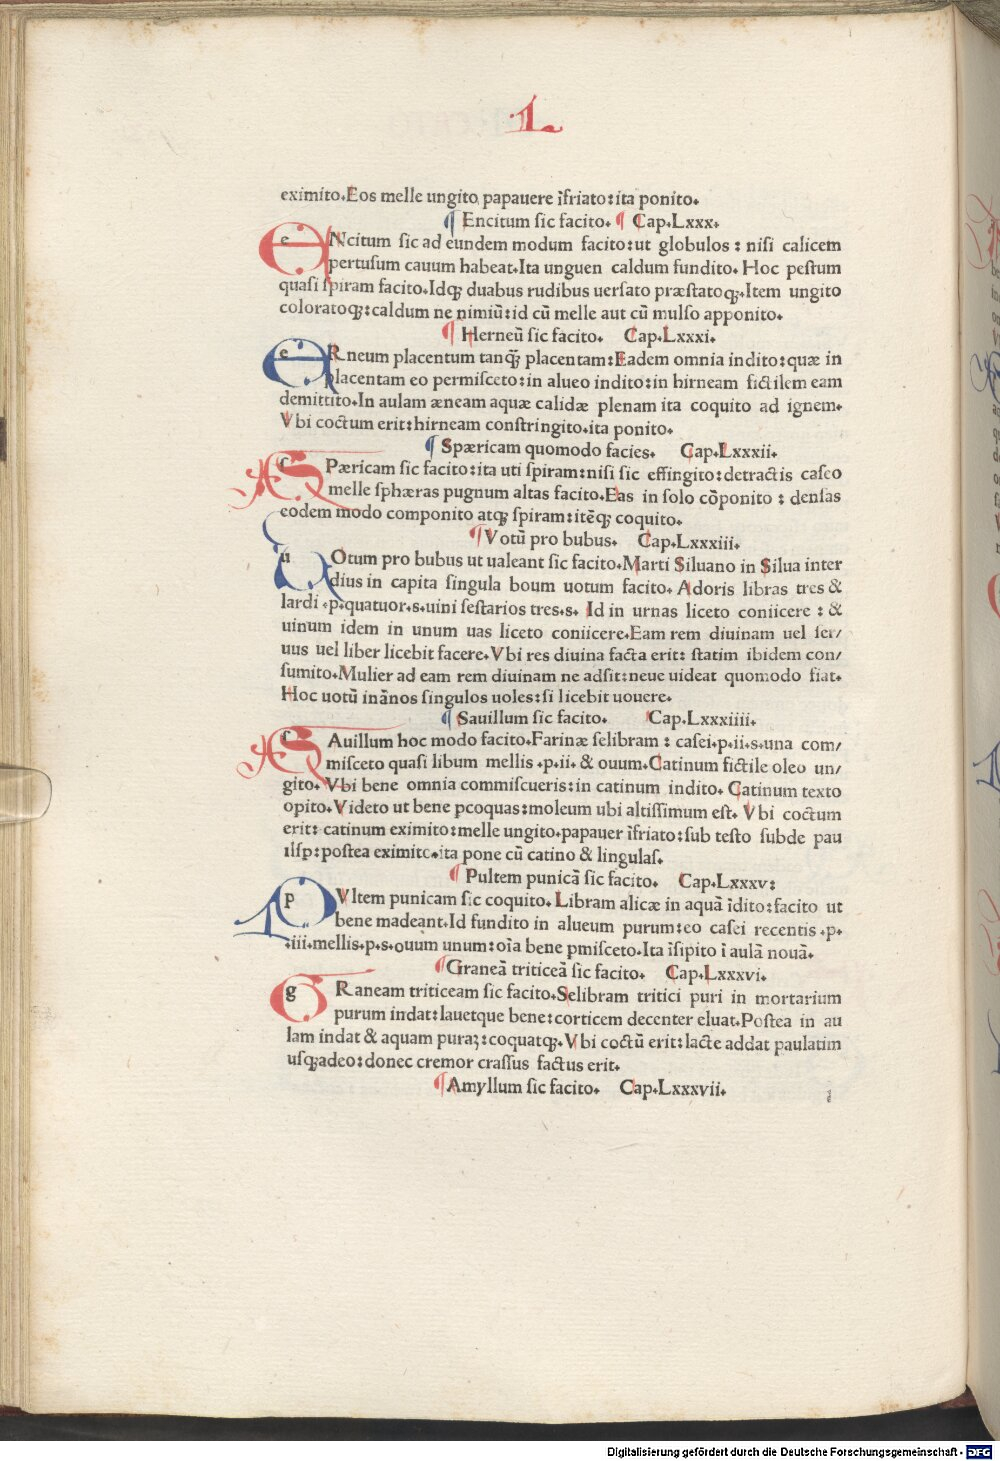 L
eximito.Eos melle ungito papauere ĩfriato:ita ponito.
¶ Encitum ſic facito. ¶ Cap.Lxxx.
eNcitum ſic ad eundem modum facito:ut globulos : niſi calicem
pertuſum cauum habeat.Ita unguen caldum fundito. Hoc peſtum
quaſi ſpiram facito.Idqꝫ duabus rudibus uerſato præſtatoqꝫ.Item ungito
coloratoqꝫ:caldum ne nimiũ:id cũ melle aut cũ mulſo apponito.
¶ Herneũ ſic facito. Cap.Lxxxi.
eRneum placentum tanq̃ placentam:Eadem omnia indito:quæ in
placentam eo permiſceto:in alueo indito:in hirneam fictilem eam
demittito.In aulam æneam aquæ calidæ plenam ita coquito ad ignem.
Vbi coctum erit:hirneam conſtringito.ita ponito.
¶ Spæricam quomodo facies. Cap.Lxxxii.
ſPæricam ſic facito:ita uti ſpiram:niſi ſic effingito:detractis caſeo
melle ſphæras pugnum altas facito.Eas in ſolo cõponito : denſas
eodem modo componito atqꝫ ſpiram:itẽqꝫ coquito.
¶Votũ pro bubus. Cap.Lxxxiii.
uOtum pro bubus ut ualeant ſic facito.Marti Siluano in Silua inter
dius in capita ſingula boum uotum facito. Adoris libras tres &
lardi .p:quatuor.s.uini ſeſtarios tres.s. Id in urnas liceto coniicere : &
uinum idem in unum uas liceto coniicere.Eam rem diuinam uel ſer/
uus uel liber licebit facere.Vbi res diuina facta erit: ſtatim ibidem con/
ſumito.Mulier ad eam rem diuinam ne adſit:neue uideat quomodo fiat.
Hoc uotũ inãnos ſingulos uoles:ſi licebit uouere.
¶ Sauillum ſic facito. Cap.Lxxxiiii.
ſAuillum hoc modo facito.Farinæ ſelibram : caſei.p.ii.s.una com/
miſceto quaſi libum mellis .p.ii. & ouum.Catinum fictile oleo un/
gito.Vbi bene omnia commiſcueris:in catinum indito. Catinum texto
opito.Videto ut bene pcoquas:moleum ubi altiſſimum eſt. Vbi coctum
erit: catinum eximito:melle ungito.papauer ĩfriato:ſub teſto ſubde pau
liſp:poſtea eximito.ita pone cũ catino & lingulaſ.
¶ Pultem punicã ſic facito. Cap.Lxxxv:
pVltem punicam ſic coquito. Libram alicæ in aquã ĩdito:facito ut
bene madeant.Id fundito in alueum purum:eo caſei recentis .p.
.iii.mellis.p.s.ouum unum:oĩa bene pmiſceto.Ita ĩſipito ĩ aulã nouã.
¶Graneã triticeã ſic facito. Cap.Lxxxvi.
gRaneam triticeam ſic facito.Selibram tritici puri in mortarium
purum indat:lauetque bene:corticem decenter eluat.Poſtea in au
lam indat & aquam puraꝫ:coquatqꝫ.Vbi coctũ erit:lacte addat paulatim
uſqꝫadeo:donec cremor craſſus factus erit.
¶Amyllum ſic facito. Cap.Lxxxvii.
Digitalisierung gefördert durch die Deutsche Forschungsgemeinschaft - DFG